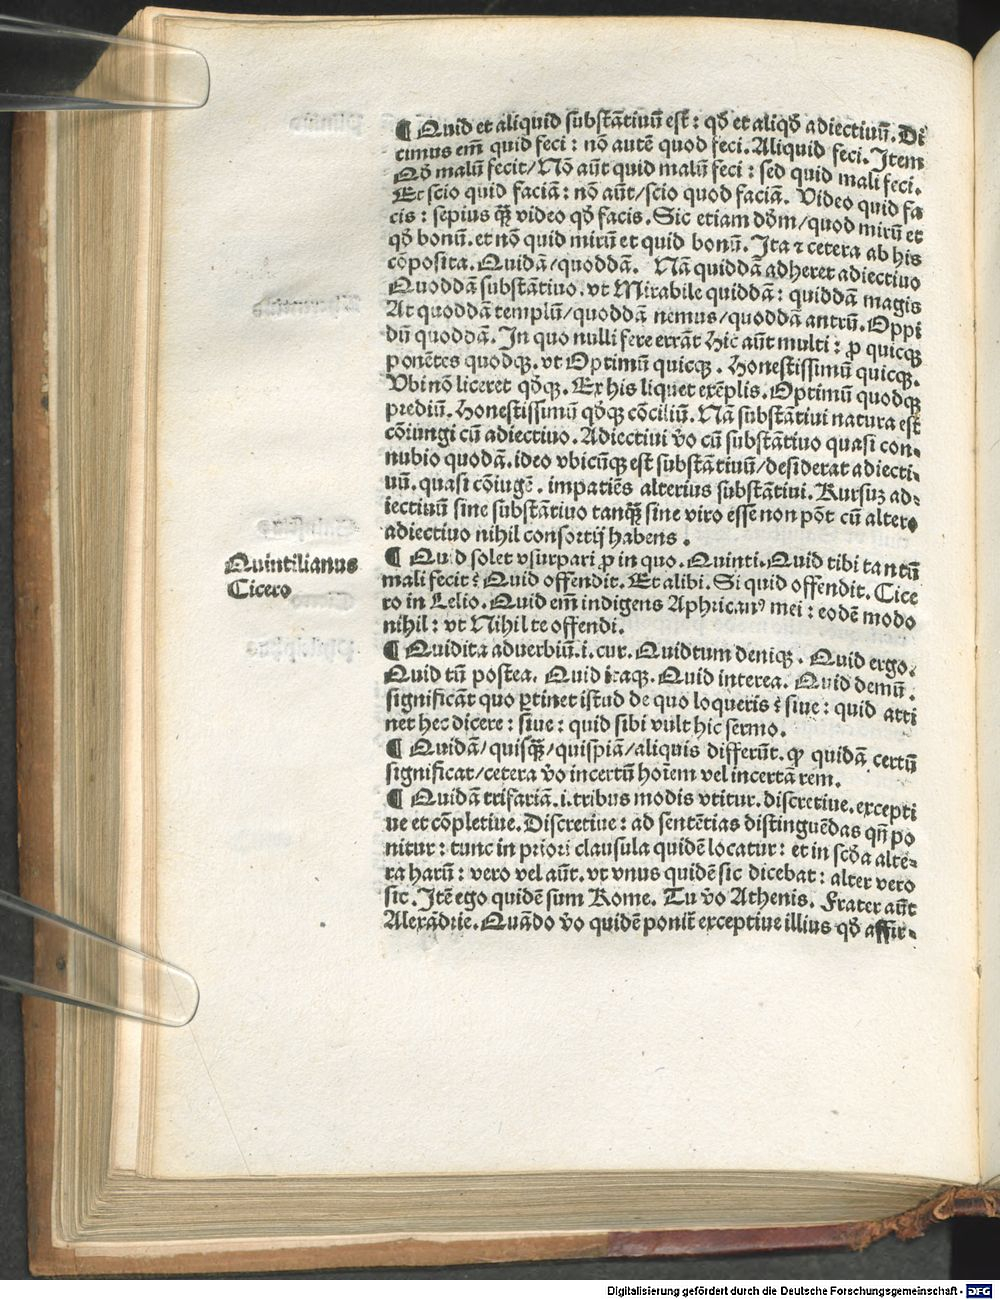 ¶ Quid et aliquid substātiuū est : qđ et aliqđ adiectiuū. Di
cimus em̄ quid feci : nō autē quod feci. Aliquid feci. Item
Qđ malū fecit/ Nō aūt quid malū feci : sed quid mali feci.
Et scio quid faciā : nō aūt/ scio quod faciā. Video quid fa
cis : sepius qꝫ̄ video qđ facis. Sic etiam dōm/ quod mirū et
qđ bonū. et nō quid mirū et quid bonū. Ita ⁊ cetera ab his
cōposita. Quidā/ quoddā. Nā quiddā adheret adiectiuo
Quoddā substātiuo. vt Mirabile quiddā : quiddā magis
At quoddā templū/ quoddā nemus/ quoddā antrū. Oppi
dū quoddā. In quo nulli fere errāt Hic aūt multi : ꝓ quicqꝫ
ponētes quodqꝫ. vt Optimū quicqꝫ. Honestissimū quicqꝫ.
Vbi nō liceret qđqꝫ. Ex his liquet exēplis. Optimū quodqꝫ
prediū. Honestissimū qđqꝫ cōciliū. Nā substātiui natura est
cōiungi cū adiectiuo. Adiectiui v̄o cū substātiuo quasi con-
nubio quodā. ideo vbicūqꝫ est substātiuū/ desiderat adiecti-
uū. quasi cōiugē. impatiēs alterius substātiui. Rursuꝫ ad-
iectiuū sine substātiuo tanqꝫ̄ sine viro esse non pōt cū altero
adiectiuo nihil consortij habens.
Quintilianus
Cicero
¶ Quid solet vsurpari ꝓ in quo. Quinti. Quid tibi tantū
mali fecit : Quid offendit. Et alibi. Si quid offendit. Cice
ro in Lelio. Quid em̄ indigens Aphricanꝰ mei : eodē modo
nihil : vt Nihil te offendi.
¶ Quid ita aduerbiū .i. cur. Quid tum deniqꝫ. Quid ergo.
Quid tū postea. Quid itaqꝫ. Quid interea. Quid demū.
significāt quo ꝑtinet istud de quo loqueris : siue : quid atti
net hec dicere : siue : quid sibi vult hic sermo.
¶ Quidā/ quisqꝫ̄/ quispiā/ aliquis differūt. ꝙ quidā certū
significat/ cetera v̄o incertū hoīem vel incertā rem.
¶ Quidā trifariā .i. tribus modis vtitur. discretiue. excepti
ue et cōpletiue. Discretiue : ad sentētias distinguēdas qn̄ po
nitur : tunc in priori clausula quidē locatur : et in scđa alte-
ra harū : vero vel aūt. vt vnus quidē sic dicebat : alter vero
sic. Itē ego quidē sum Rome. Tu v̄o Athenis. Frater aūt
Alexādrie. Quādo v̄o quidē ponit̄ exceptiue illius qđ affir-
Digitalisierung gefördert durch die Deutsche Forschungsgemeinschaft - DFG